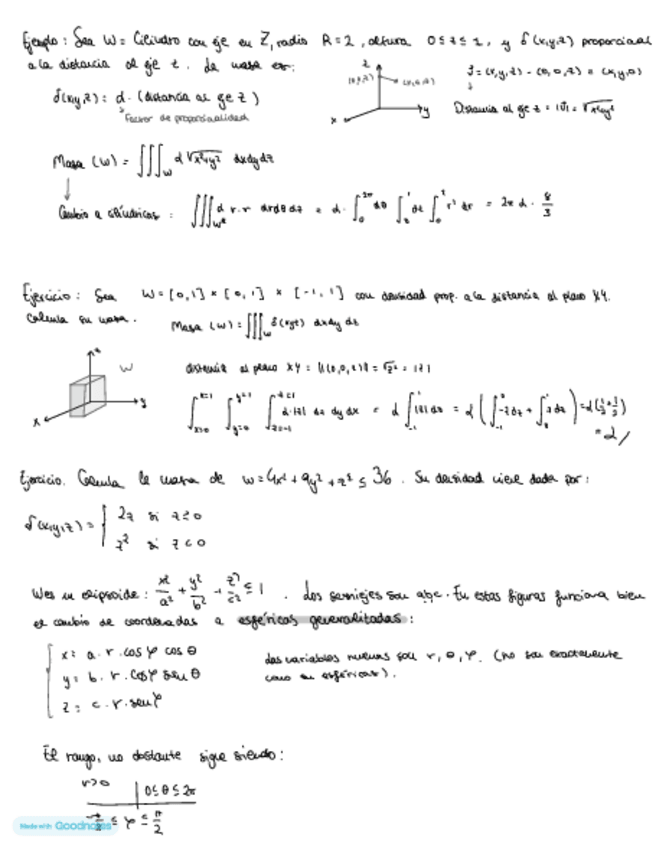 Ejemplo: Sea W = Cilindro con eje en Z, radio R=2, altura 0≤z≤1, y δ(x,y,z) proporcional
a la distancia al eje z. La masa es:
δ(x,y,z) = d · (distancia al eje z)
Factor de proporcionalidad
z
(0,0,z)
(x,y,z)
x
y
v = (x,y,z) - (0,0,z) = (x,y,0)
Distancia al eje z = |v| = √x²+y²
Masa (W) = ∭_W d √x²+y² dxdydz
Cambio a cilíndricas: ∭_W* d r·r drdθdz = d · ∫_0^2π dθ ∫_0^1 dz ∫_0^2 r² dr = 2π d · 8/3
Ejercicio: Sea W = [0,1] × [0,1] × [-1,1] con densidad prop. a la distancia al plano XY.
Calcula su masa. Masa (W) = ∭_W δ(xyz) dxdydz
z
W
x
y
distancia al plano XY = ||(0,0,z)|| = √z² = |z|
∫_x=0^x=1 ∫_y=0^y=1 ∫_z=-1^z=1 d·|z| dz dy dx = d ∫_-1^1 |z| dz = d (∫_-1^0 -z dz + ∫_0^1 z dz) = d(1/2 + 1/2)
= d
Ejercicio. Calcula la masa de W = 4x² + 9y² + z² ≤ 36. Su densidad viene dada por:
δ(x,y,z) = { 2z si z≥0
z² si z<0
W es un elipsoide: x²/a² + y²/b² + z²/c² ≤ 1. Los semiejes son a,b,c. En estas figuras funciona bien
el cambio de coordenadas a esféricas generalizadas:
x = a · r · cos φ cos θ
y = b · r · cos φ sen θ
z = c · r · sen φ
Las variables nuevas son r, θ, φ. (no son exactamente
como en esféricas).
El rango, no obstante sigue siendo:
r>0 | 0≤θ≤2π
-π/2 ≤ φ ≤ π/2
Made with Goodnotes